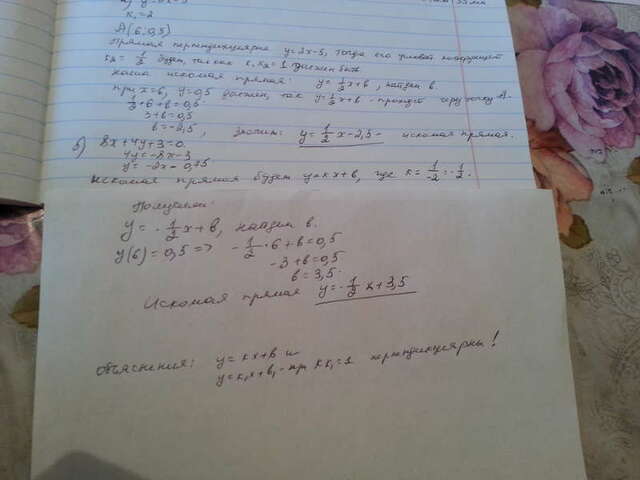 k₁=2
A(6;0,5)
Прямая перпендикулярна y=2x-5, тогда его угловой коэффициент
k₂= 1/2 будет, так как k₁k₂=1 должен быть.
наша искомая прямая: y= 1/2 x+b, найдем b.
при x=6, y=0,5 должен, так y= 1/2 x+b - проходит через точку A.
1/2·6+b=0,5
3+b=0,5
b=-2,5, значит: y= 1/2 x-2,5 - искомая прямая.
б) 8x+4y+3=0.
4y=-8x-3
y=-2x-0,75
Искомая прямая будет y=kx+b, где k= 1/-2 = -1/2.
Получим:
y= -1/2 x+b, найдем b.
y(6)=0,5 => -1/2·6+b=0,5
-3+b=0,5
b=3,5.
Искомая прямая y=-1/2 x+3,5
Объяснения: y=kx+b и
y=k₁x+b₁ - при k·k₁=1 перпендикулярны!